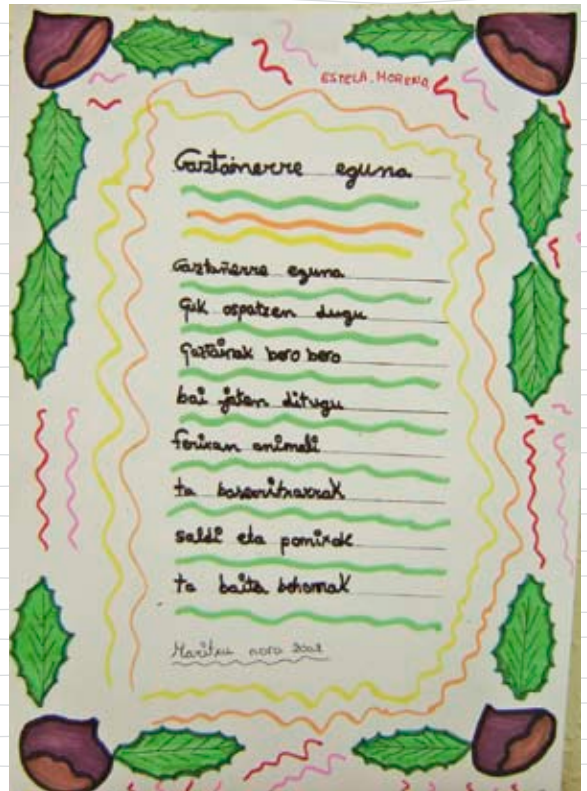 ESTELA.MORENO
Gaztainerre eguna
Gaztañerre eguna
Guk ospatzen dugu
Gaztainak bero bero
bai jaten ditugu
ferixan animali
ta baserritxarrak
saldi eta ponixak
ta baita behorrak
Maritxu